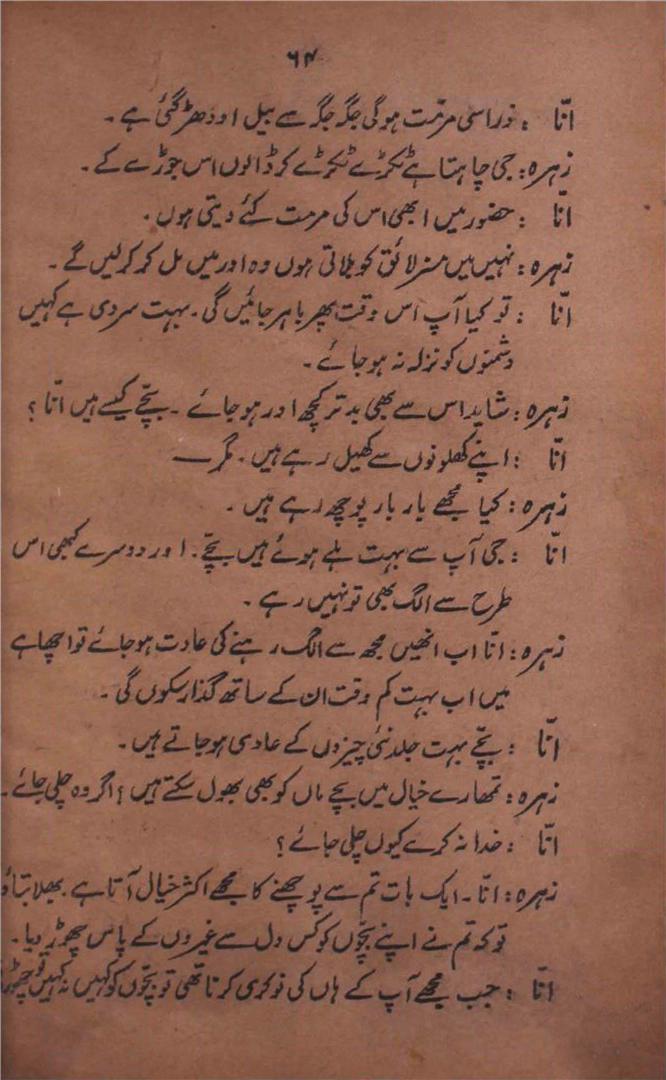 ۶۴
انّا : ذرا سی مرمّت ہوگی جگہ جگہ سے بیل اودھڑ گئی ہے۔
زہرہ : جی چاہتا ہے ٹکڑے ٹکڑے کر ڈالوں اس جوڑے کے۔
انّا : حضور میں ابھی اس کی مرمت کئے دیتی ہوں۔
زہرہ : نہیں میں مسز لائق کو بلاتی ہوں وہ اور میں مل کر کرلیں گے۔
انّا : تو کیا آپ اس وقت پھر باہر جائیں گی۔ بہت سردی ہے کہیں
دشمنوں کو نزلہ نہ ہوجائے۔
زہرہ : شاید اس سے بھی بدتر کچھ اور ہوجائے۔ بچّے کیسے ہیں انّا ؟
انّا : اپنے کھلونوں سے کھیل رہے ہیں۔ مگر ــــ
زہرہ : کیا مجھے بار بار پوچھ رہے ہیں۔
انّا : جی آپ سے بہت ہلے ہوئے ہیں بچّے۔ اور دوسرے کبھی اس
طرح سے الگ بھی تو نہیں رہے۔
زہرہ : انّا اب انھیں مجھ سے الگ رہنے کی عادت ہوجائے تو اچھا ہے
میں اب بہت کم وقت ان کے ساتھ گذار سکوں گی۔
انّا : بچّے بہت جلد نئی چیزوں کے عادی ہوجاتے ہیں۔
زہرہ : تمھارے خیال میں بچے ماں کو بھی بھول سکتے ہیں ؟ اگر وہ چلی جائے۔
انّا : خدا نہ کرے کیوں چلی جائے ؟
زہرہ : انّا۔ ایک بات تم سے پوچھنے کا مجھے اکثر خیال آتا ہے بھلا بتاؤ
تو کہ تم نے اپنے بچّوں کو کس دل سے غیروں کے پاس چھوڑ دیا۔
انّا : جب مجھے آپ کے ہاں کی نوکری کرنا تھی تو بچّوں کو کہیں نہ کہیں تو